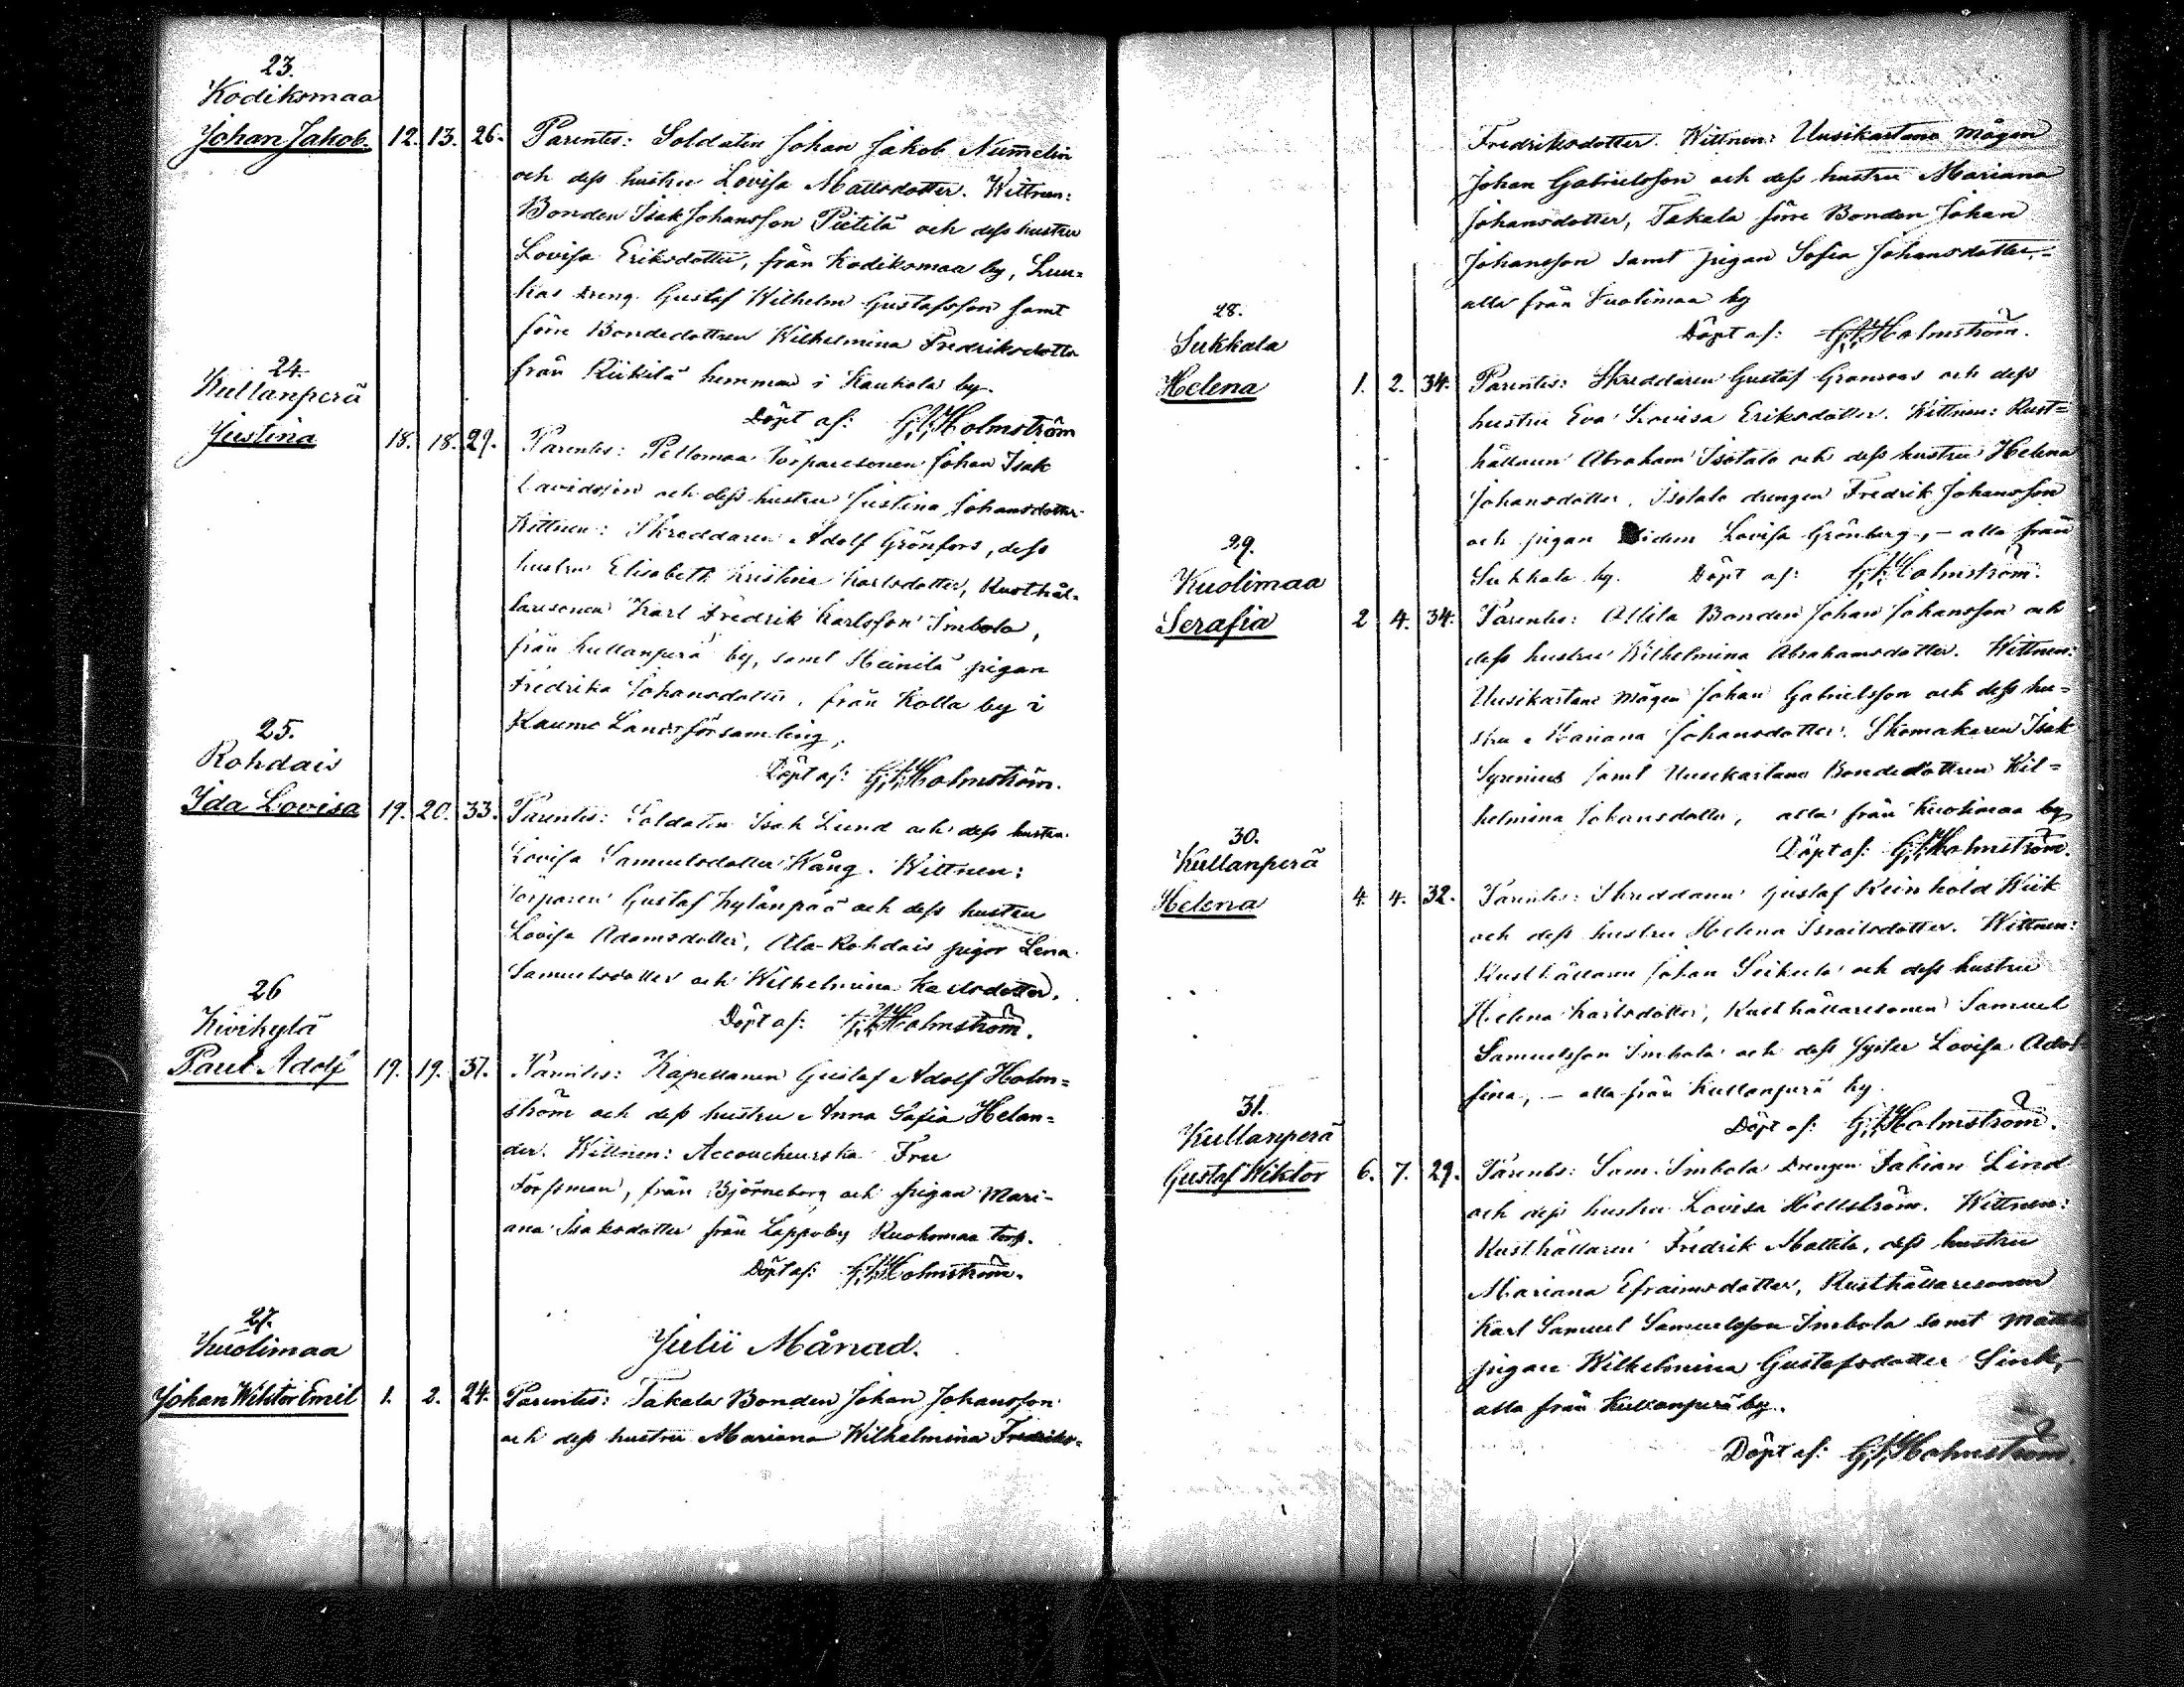 23.
Kodiksmaa
Johan Jakob. 12. 13. 26. Parentes: Soldaten Johan Jakob Numelin
och dess hustru Lovisa Mattsdotter. Wittnen:
Bonden Isak Johansson Pietilä och dess hustru
Lovisa Eriksdotter, från Kodiksmaa by, Luu=
kas dreng Gustaf Wilhelm Gustafsson samt
förre Bondedottren Wilhelmina Fredriksdotter
från Riikilä hemman i Kaukola by.
Döpt af: G.A.Holmström
24.
Kullanperä
Justina 18. 18. 29. Parentes: Peltomaa Torparesonen Johan Isak
Davidsson och dess hustru Justina Johansdotter
Wittnen: Skreddaren Adolf Grönfors, dess
hustru Elisabeth Kristina Karlsdotter, Rusthål=
laresonen Karl Fredrik Karlsson Imbola,
från Kullanperä by, samt Heinilä pigan
Fredrika Johansdotter, från Kolla by i
Raumo Landsförsamling,
Döpt af: G.A.Holmström.
25.
Rohdais
Ida Lovisa 19. 20. 33. Parentes: Soldaten Isak Lund och dess hustru
Lovisa Samuelsdotter Wång. Wittnen:
Torparen Gustaf Kylänpää och dess hustru
Lovisa Adamsdotter, Ala-Rohdais pigor Lena
Samuelsdotter och Wilhelmina Karlsdotter.
Döpt af: G.A.Holmström.
26
Kivikylä
Paul Adolf 19. 19. 37. Parentes: Kapellanen Gustaf Adolf Holm=
ström och dess hustru Anna Sofia Helan=
der. Wittnen: Accoucheurska Fru
Forssman, från Björneborg och pigan Mari=
ana Isaksdotter från Lappoby Ruohomaa torp.
Döpt af: G.A.Holmström.
Julii Månad.
27.
Kuolimaa
Johan Wiktor Emil 1. 2. 24. Parentes: Takala Bonden Johan Johansson
och dess hustru Mariana Wilhelmina Fredriks=
Fredriksdotter. Wittnen: Uusikartano mågen
Johan Gabrielsson och dess hustru Mariana
Johansdotter, Takala förre Bonden Johan
Johansson samt pigan Sofia Johansdotter,=
alla från Kuolimaa by
Döpt af: G.A.Holmström.
28.
Sukkala
Helena 1. 2. 34. Parentes: Skreddaren Gustaf Granroos och dess
hustru Eva Lovisa Eriksdotter. Wittnen: Rust=
hållaren Abraham Isotalo och dess hustru Helena
Johansdotter, Isotalo drengen Fredrik Johansson
och pigan Lovisa Grönberg, - alla från
Sukkala by. Döpt af: G.A.Holmström.
29.
Kuolimaa
Serafia 2 4. 34. Parentes: Attila Bonden Johan Johansson och
dess hustru Wilhelmina Abrahamsdotter. Wittnen:
Uusikartano mågen Johan Gabrielsson och dess hu=
stru Mariana Johansdotter. Skomakaren Isak
Syrenius samt Uusikartano Bondedottren Wil=
helmina Johansdotter, alla från Kuolimaa by
Döpt af: G.A.Holmström.
30.
Kullanperä
Helena 4. 4. 32. Parentes: Skreddaren Gustaf Reinhold Wiik
och dess hustru Helena Israilsdotter. Wittnen:
Rusthållaren Johan Seikula och dess hustru
Helena Karlsdotter, Rusthållaresonen Samuel
Samuelsson Imbola och dess syster Lovisa Adol
fina, - alla från Kullanperä by.
Döpt af: G.A.Holmström.
31.
Kullanperä
Gustaf Wiktor 6. 7. 29. Parentes: Sam. Imbola Drengen Fabian Lind
och dess hustru Lovisa Hellström. Wittnen:
Rusthållaren Fredrik Mattila, dess hustru
Mariana Efraimsdotter, Rusthållaresonen
Karl Samuel Samuelsson Imbola samt Mattila
pigan Wilhelmina Gustafsdotter Sink,-
alla från Kullanperä by.
Döpt af: G.A.Holmström.